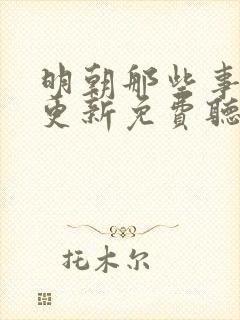 明朝那些事
更新免費聽
托木尔